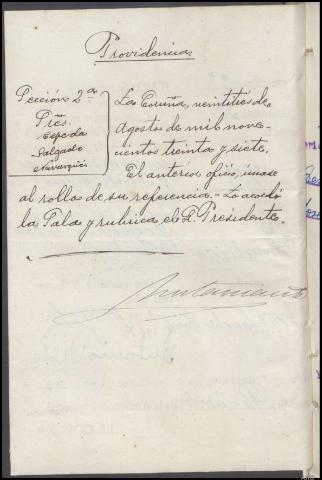 Providencia
Sección 2ª
Sres.
Cepeda
Salgado
La Coruña, veintitres de
Agosto de mil nove-
cientos treinta y siete.
El anterior oficio, unase
al rollo de su referencia.- Lo acordó
la Sala y rubrica el Sr. Presidente.